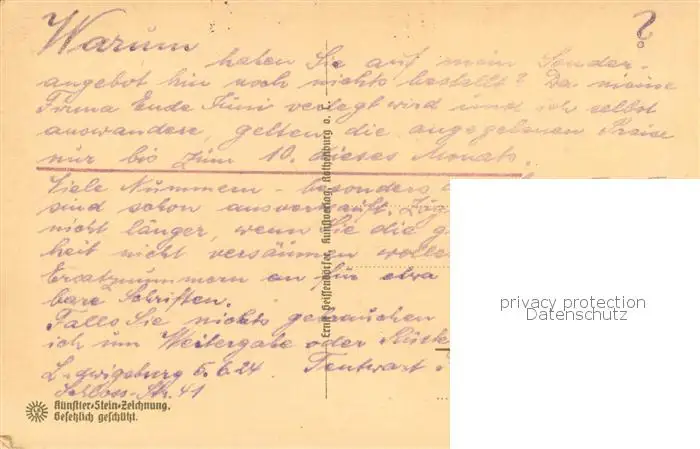 Warum ?
haben Sie auf mein Sonder-
angebot hin noch nichts bestellt? Da meine
Firma Ende Juni verlegt wird und ich selbst
auswandere, gelten die angegebenen Preise
nur bis zum 10. dieses Monats.
Viele Nummern - besonders
sind schon ausverkauft.
nicht länger, wenn Sie die
heit nicht versäumen
Ersatznummern an für etwa
bare Schriften.
Falls Sie nichts gebrauchen
ich um Weitergabe oder
Ludwigsburg 5.6.24.
Schloss-Str. 41
Künstler-Stein-Zeichnung.
Gesetzlich geschützt.
Ernst Geissendörfer, Kunstverlag, Rothenburg o. T.
privacy protection
Datenschutz